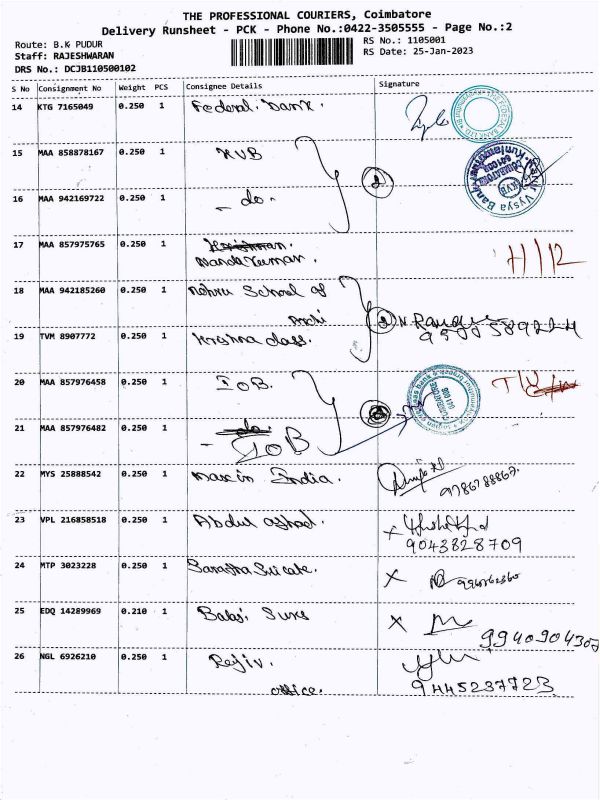 THE PROFESSIONAL COURIERS, Coimbatore
Delivery Runsheet - PCK - Phone No.:0422-3505555 - Page No.:2
Route: B.K PUDUR
RS No.: 1105001
Staff: RAJESHWARAN
RS Date: 25-Jan-2023
DRS No.: DCJB110500102
S No Consignment No Weight PCS Consignee Details Signature
14 KTG 7165049 0.250 1 Federal. Bank.
15 MAA 858878167 0.250 1 KVB
16 MAA 942169722 0.250 1 - do -
2
17 MAA 857975765 0.250 1
Nanda Kumar.
18 MAA 942185260 0.250 1 Nehru School of
Archi
19 TVM 8907772 0.250 1 Krishna class.
2
20 MAA 857976458 0.250 1 IOB.
21 MAA 857976482 0.250 1 - do.
IOB
22 MYS 25888542 0.250 1 India.
23 VPL 216858518 0.250 1 Abdul
9043828709
24 MTP 3023228 0.250 1 X
25 EDQ 14289969 0.210 1 Balaji X
9940904307
26 NGL 6926210 0.250 1 Rejiv.
office. 9445237723